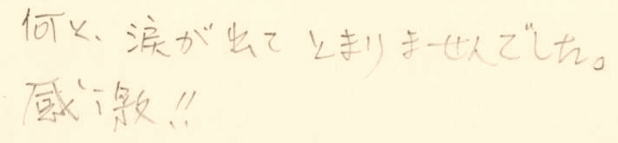 何と、涙が出てとまりませんでした。
感激!!